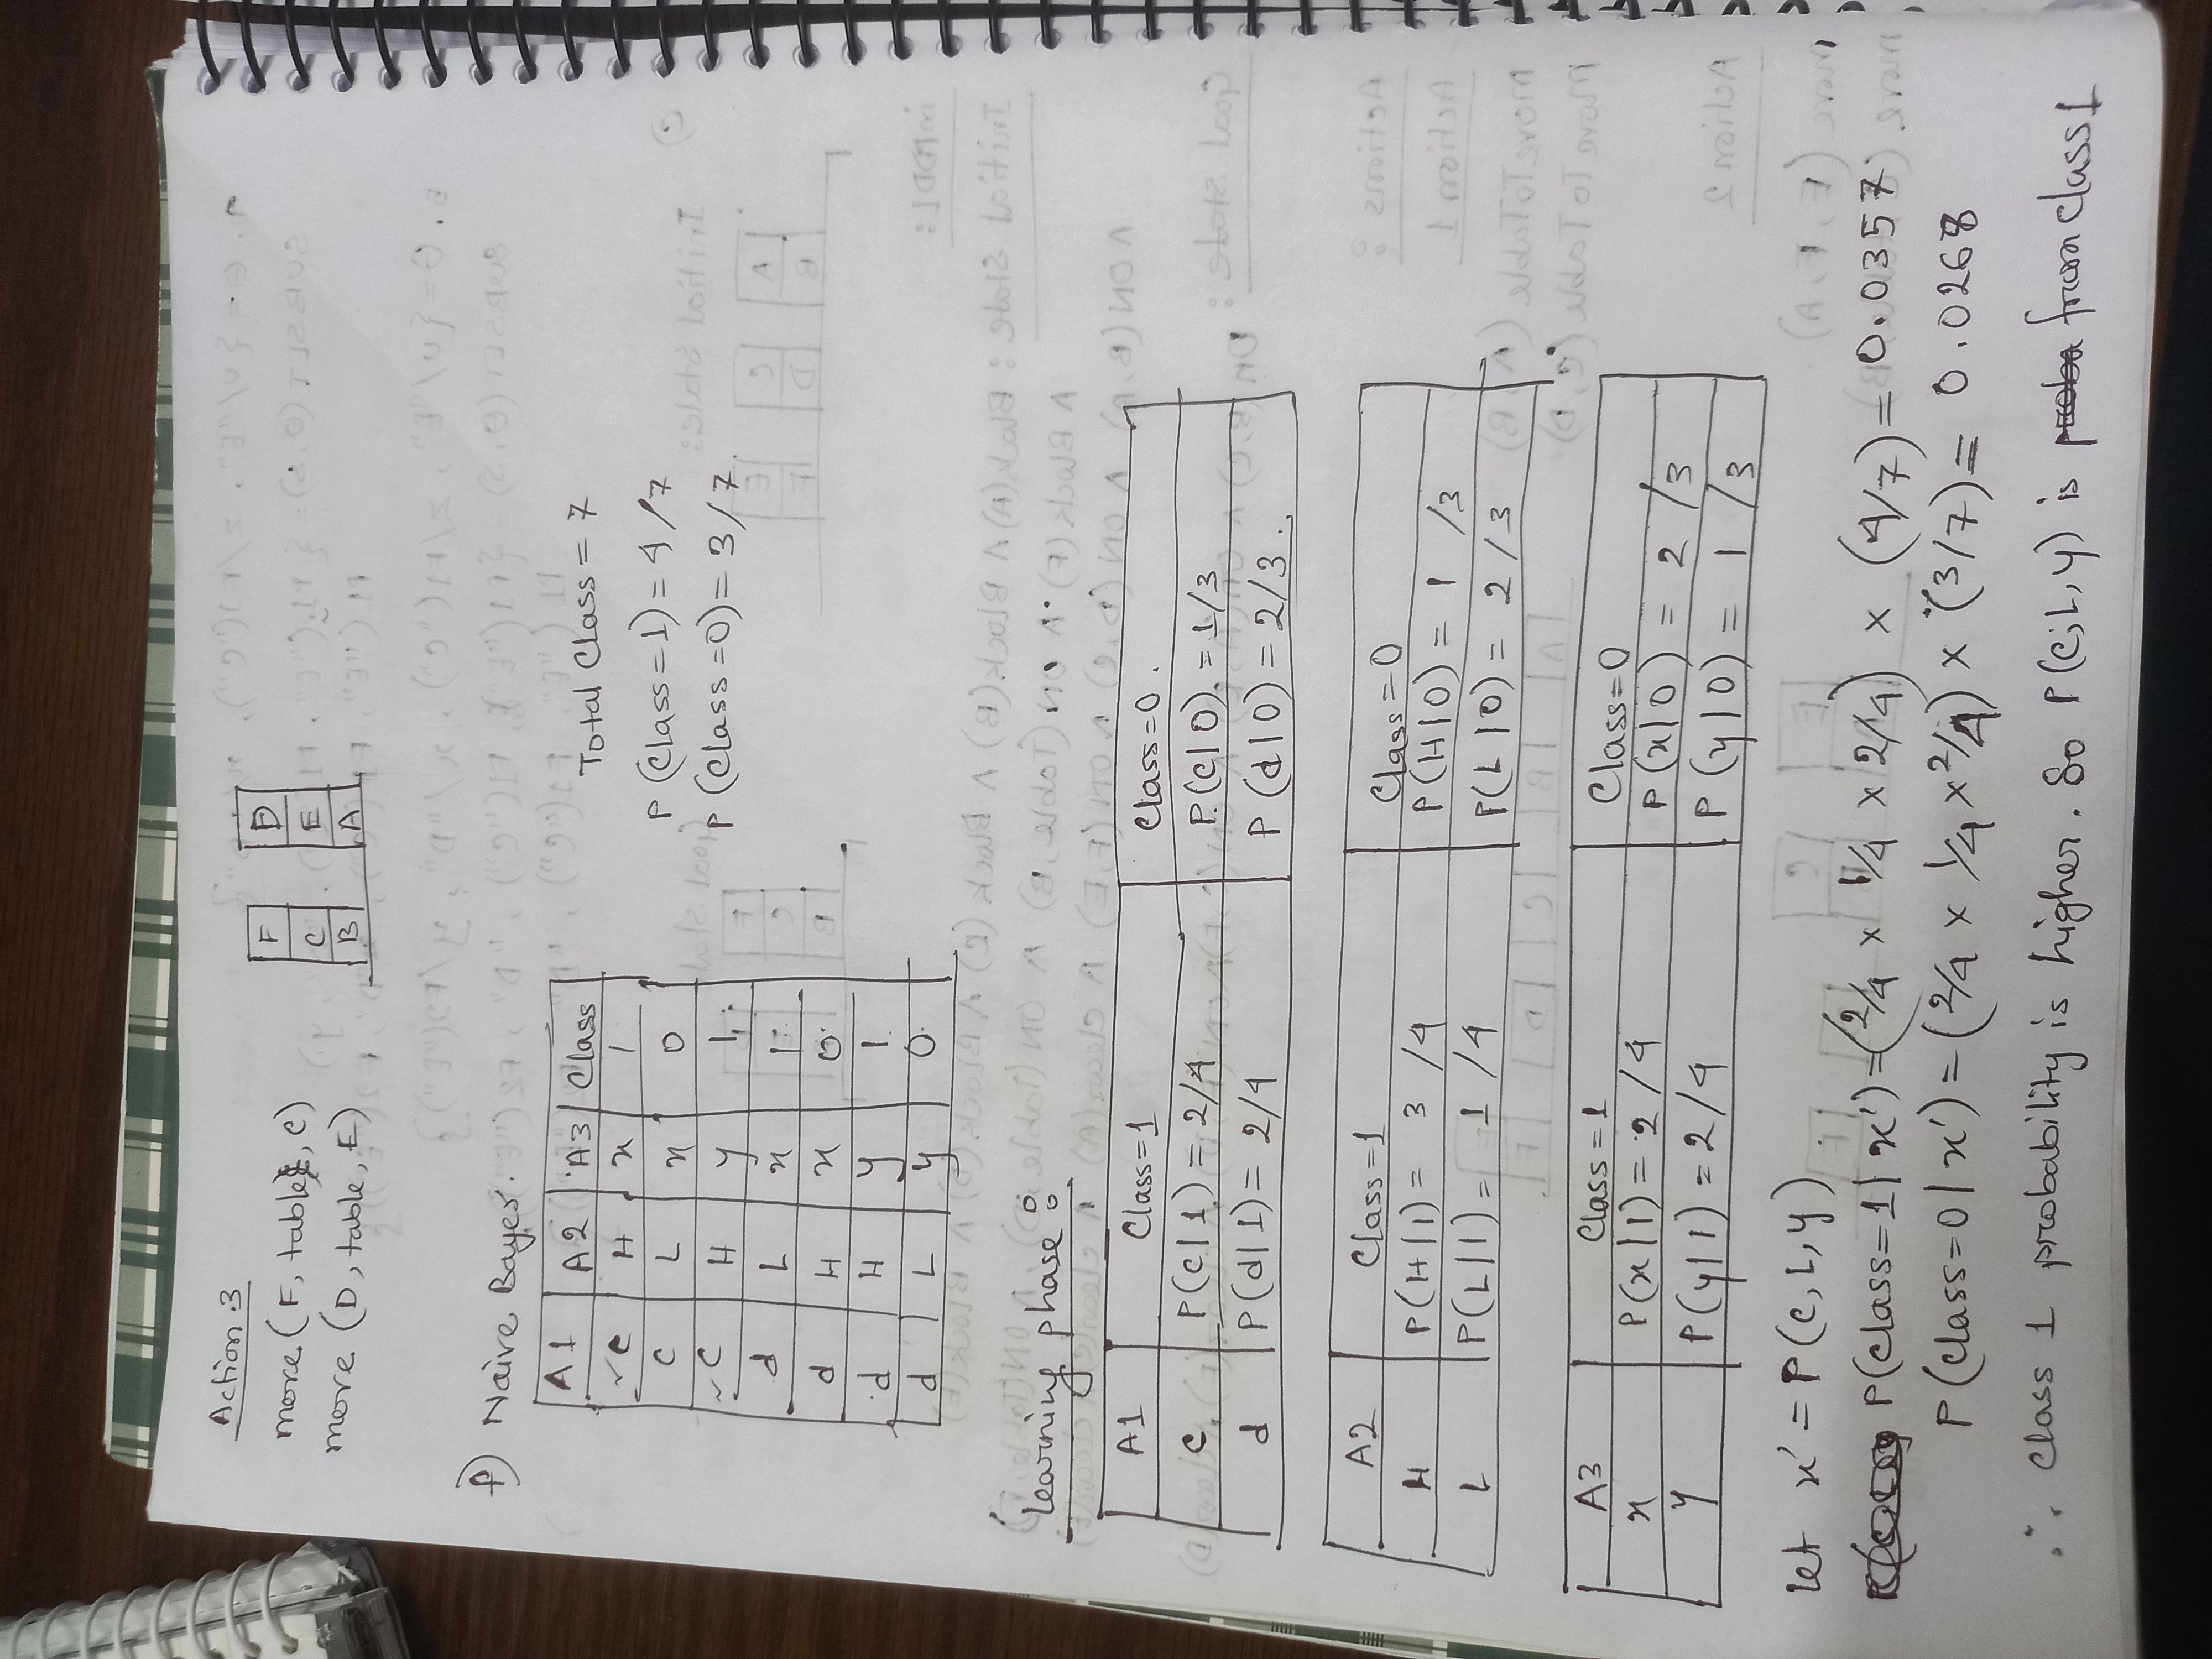 Action.3
move (F, table, C)
move (D, table, E)
F D
C E
B A
f) Naive Bayes.
A1 A2 A3 Class
c H x 1
c L x 0
c H y 1
d L x 1
d H x 0
d H y 1
d L y 0
Total Class = 7
P (Class=1) = 4/7
P (Class=0) = 3/7
Learning phase :
A1 Class=1 Class=0.
c P(c|1) = 2/4 P(c|0) = 1/3
d P(d|1) = 2/4 P(d|0) = 2/3.
A2 Class=1 Class=0
H P(H|1) = 3/4 P(H|0) = 1/3
L P(L|1) = 1/4 P(L|0) = 2/3
A3 Class=1 Class=0
x P(x|1) = 2/4 P(x|0) = 2/3
y P(y|1) = 2/4 P(y|0) = 1/3
Let x' = P(c, L, y).
P(class=1| x') = (2/4 x 1/4 x 2/4) x (4/7) = 0.0357
P(class=0| x') = (2/4 x 1/4 x 2/4) x (3/7) = 0.0268
∴ class 1 probability is higher. So P(c, L, y) is from class 1